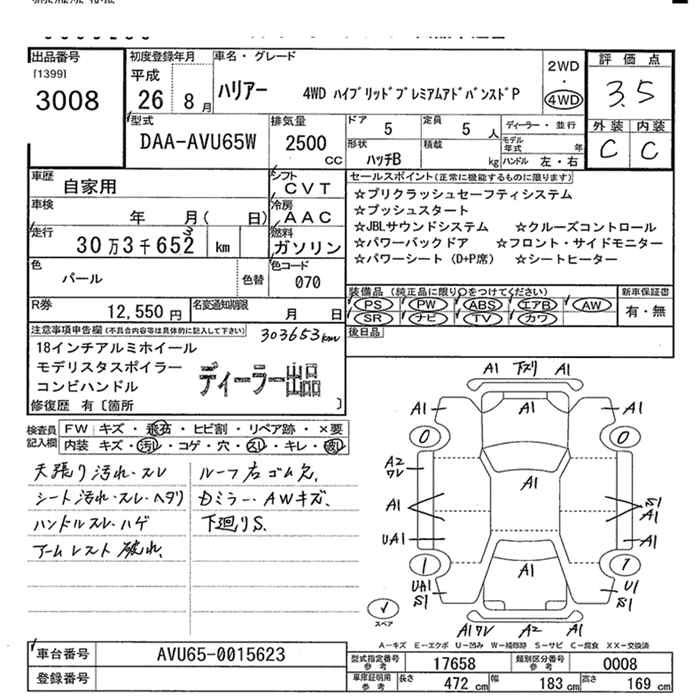 出品番号
[1399]
3008
初度登録年月
平成
26 8月
車名・グレード
ハリアー 4WD ハイブリッドプレミアムアドバンスドP
2WD
・
4WD
評価点
3.5
外装 内装
C C
型式
DAA-AVU65W
排気量
2500
CC
ドア 5
定員 5人
ディーラー・並行
形状 ハッチB
積載 kg
モデル年式 年
ハンドル 左・右
車歴 自家用
シフト CVT
車検 年 月( 日)
冷房 AAC
走行 30万3千652 km
3
燃料 ガソリン
色 パール
色替
色コード 070
R券 12,550円
名変通知期限 月 日
セールスポイント(正常に機能するものに限ります)
☆プリクラッシュセーフティシステム
☆プッシュスタート
☆JBLサウンドシステム ☆クルーズコントロール
☆パワーバックドア ☆フロント・サイドモニター
☆パワーシート(D+P席) ☆シートヒーター
装備品(純正品に限り○をつけてください)
新車保証書
PS PW ABS エアB AW
SR ナビ TV カワ
有・無
後日品
注意事項申告欄(不具合内容等は具体的に記入して下さい)
303653km
18インチアルミホイール
モデリスタスポイラー
コンビハンドル
ディーラー出品
修復歴 有〔箇所 〕
検査員記入欄
FW キズ・飛石・ヒビ割・リペア跡・×要
内装 キズ・汚れ・コゲ・穴・スレ・キレ・破れ
天張り汚れ・スレ
シート汚れ・スレ・ヘタリ
ハンドルスレ・ハゲ
アームレスト破れ
ルーフ右ゴム欠
Dミラー・AWキズ
下廻りS
A1 下ズリ A1
A1 A1
0 0
A2
ワレ
A1
A1
S1
A1
UA1 A1
A1
1 1
UA1
S1
U1
S1
A1ワレ A2 A1
スペア
A−キズ E−エクボ U−凹み W−補修跡 S−サビ C−腐食 XX−交換済
車台番号 AVU65-0015623
登録番号
型式指定番号 参考 17658
類別区分番号 参考 0008
車庫証明用 参考
長さ 472 cm
幅 183 cm
高さ 169 cm